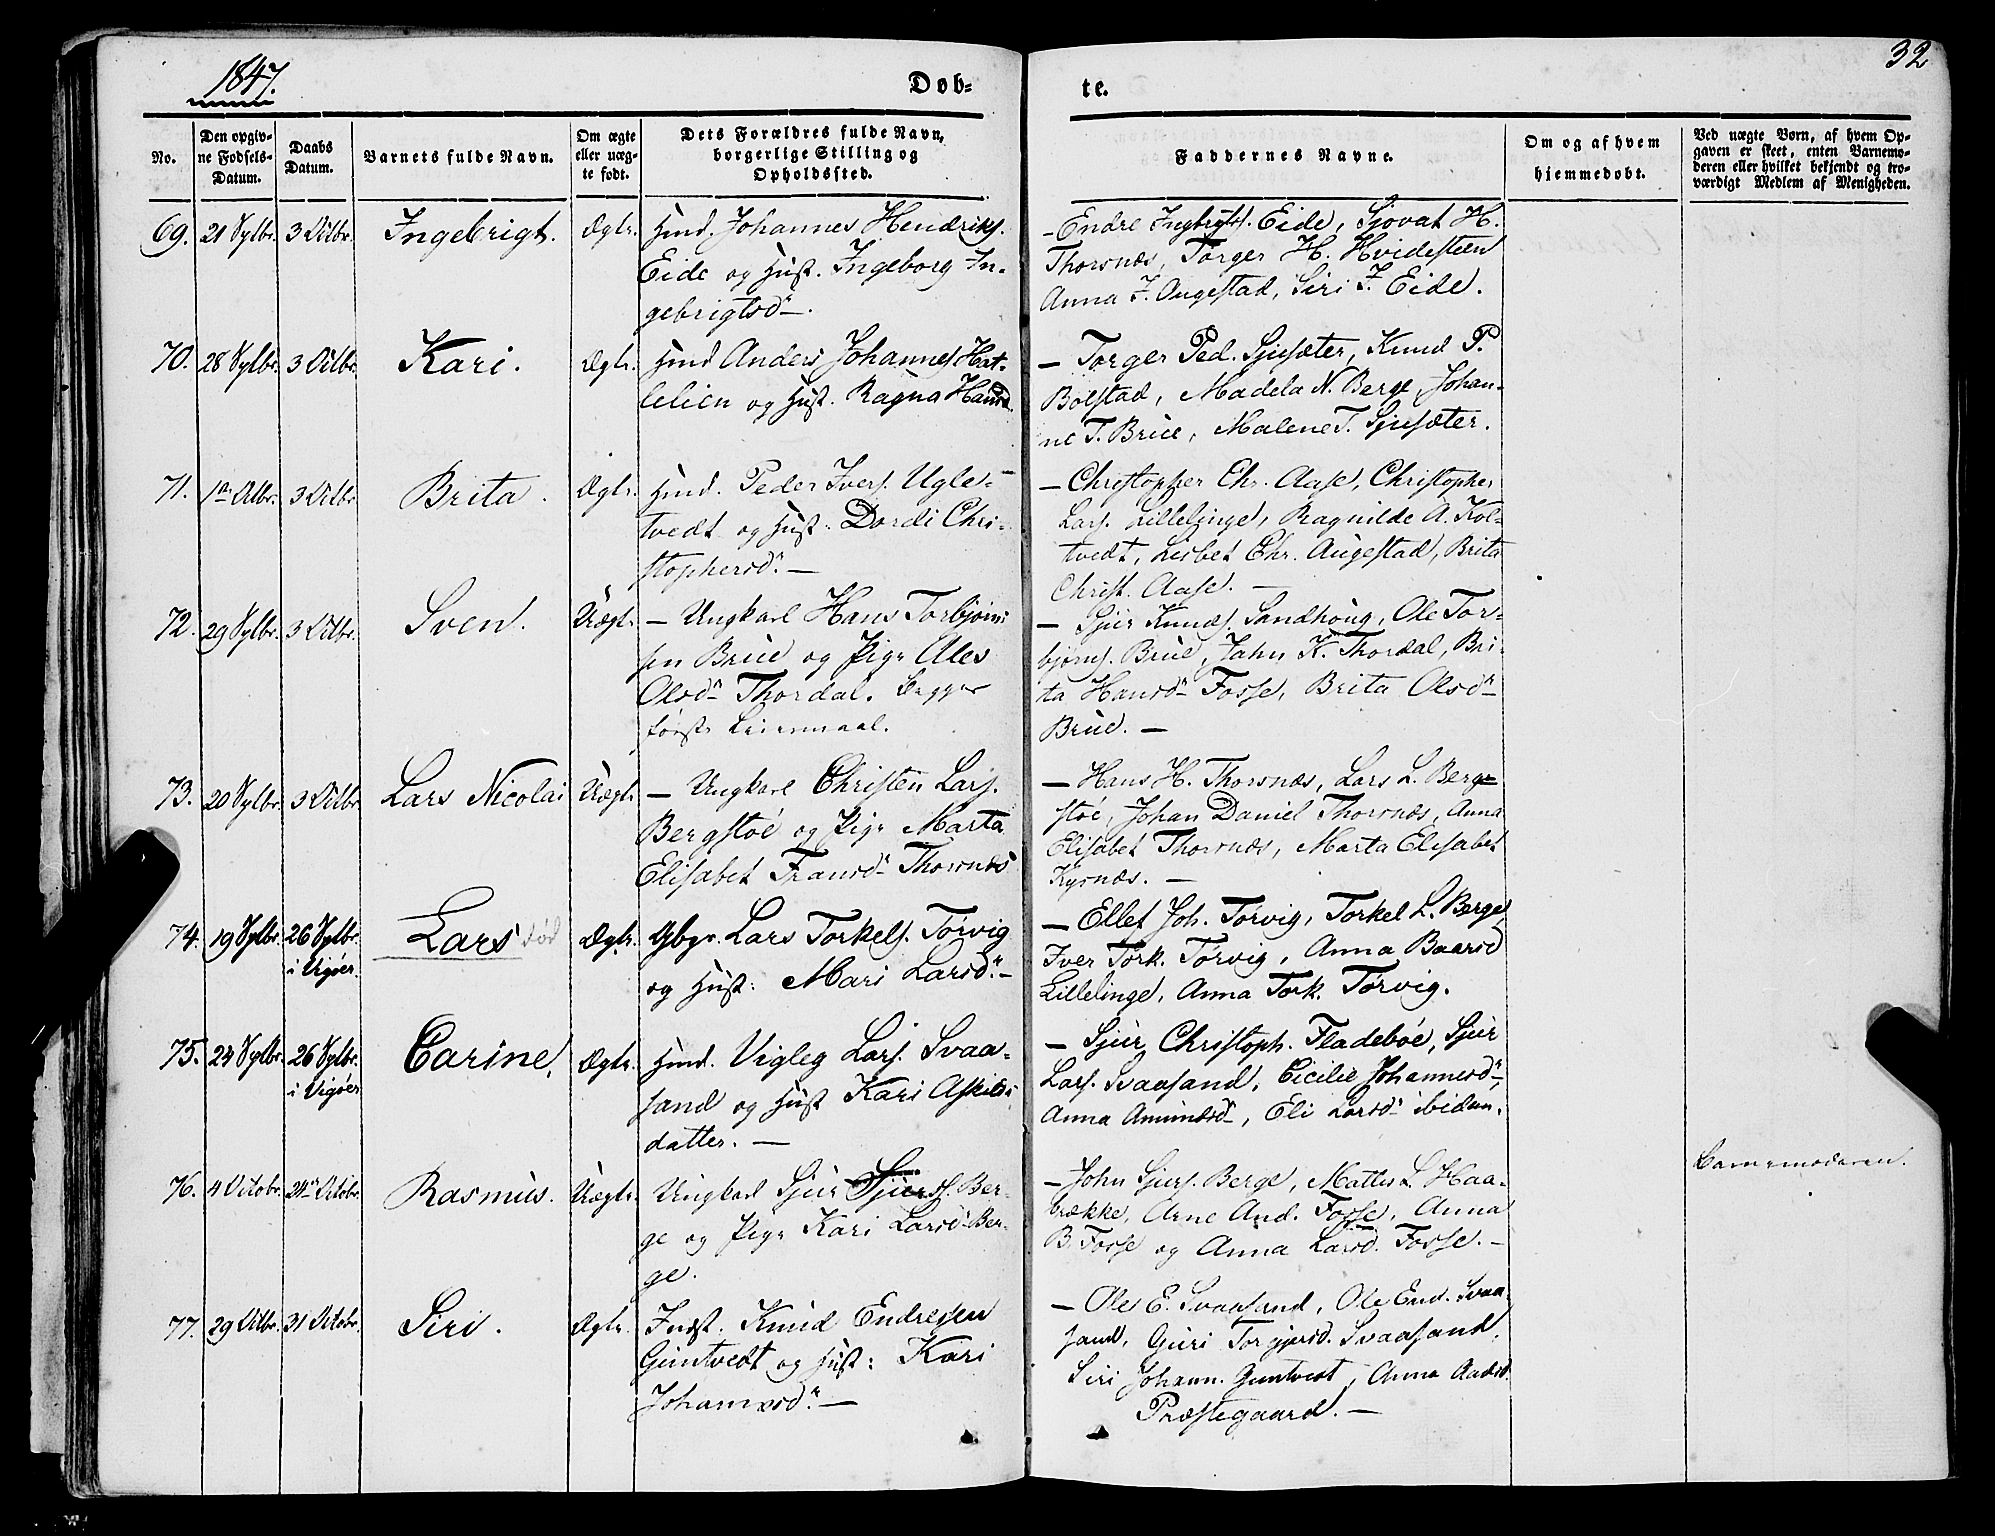 1847.
Døb-
te.
32
No.
Den opgiv-
ne Fødsels-
Datum.
Daabs
Datum.
Barnets fulde Navn.
Om ægte
eller uæg-
te født.
Dets Forældres fulde Navn,
borgerlige Stilling og
Opholdssted.
Faddernes Navne.
Om og af hvem
hjemmedøbt.
Ved uægte Børn, af hvem Op-
gaven er skeet, enten Barnemo-
deren eller hvilket bekjendt og tro-
værdigt Medlem af Menigheden.
69. 21 Sptbr. 3 Octbr. Ingebrigt. Ægte. Huusmd. Johannes Hendriks.
Eide og Hust. Ingeborg In-
gebrigtsdr. —
- Endre Ingbrigts. Eide, Sjovat H.
Thorsnæs, Torger H. Hvidesteen
Anna J. Augestad, Siri J. Eide.
70. 28 Sptbr. 3 Octbr. Kari. Ægte. Huusmd. Anders Johannes. Hat-
lelien og Hust. Ragna Hansd.
— Torger Ped. Sjusæter, Knud P.
Bolstad, Madela N. Berge, Johan-
ne T. Brue, Malene T. Sjusæter.
71. 1ste Octbr. 3 Octbr. Brita. Ægte. Huusmd. Peder Ivers. Ugle-
tvedt og Hust: Dordi Chri-
stophersdr. —
— Christopher Chr. Aase, Christopher
Lars. Lillelinge, Ragnilde A. Kol-
tvedt, Lisbet Chr. Augestad, Brita
Christ. Aase. —
72. 29 Sptbr. 3 Octbr. Sven. Uægte. — Ungkarl Hans Torbjørn-
sen Brue og Pige Ales
Olsdr. Thordal. Begges
første Leiermaal.
— Sjur Knuds. Sandhoug, Ole Tor-
bjørns. Brue, Jahn K. Thordal, Bri-
ta Hansdr. Fosse, Brita Olsdr.
Brue. —
73. 20 Sptbr. 3 Octbr. Lars Nicolai Uægte. — Ungkarl Christen Lars.
Bergstøe og Pige Marta
Elisabet Fransdr. Thorsnæs
— Hans H. Thorsnæs, Lars L. Berg-
støe, Johan Daniel Thorsnæs, Anna
Elisabet Thorsnæs, Marta Elisabet
Kysnæs. —
74. 19 Sptbr. 26 Sptbr.
i Vigøer Lars død Ægte. Gbgr. Lars Torkels. Tørvig
og Hust: Mari Larsdr. —
— Ellef Joh. Tørvig, Torkel L. Berge
Iver Tork. Tørvig, Anna Baarsd.
Lillelinge, Anna Tork. Tørvig.
75. 24 Sptbr. 26 Sptbr.
i Vigøer Carine. Ægte. Huusmd. Vigleg Lars. Svaa-
sand og Hust Kari Askilds-
datter. —
— Sjur Christoph. Fladebøe, Sjur
Lars. Svaasand, Cicilie Johannesdr.,
Anna Amundsdr., Eli Larsdr. ibidem.
76. 4 Octobr. 24de Octobr. Rasmus. Uægte. Ungkarl Sjur Sjurs. Ber-
ge og Pige Kari Larsdr. Ber-
ge.
— John Sjurs. Berge, Mattis L. Haa-
brække, Arne And. Fosse, Anna
B. Fosse og Anna Larsd. Fosse. —
Barnemoderen.
77. 29 Octbr. 31 Octobr. Siri. Ægte. Indst. Knud Endresen
Guntvedt og Hust: Kari
Johannesdr. —
— Ole E. Svaasand, Ole End. Svaa-
sand, Guri Torgjersd. Svaasand,
Siri Johann. Guntvedt, Anna Aadsd.
Præstegaard. —